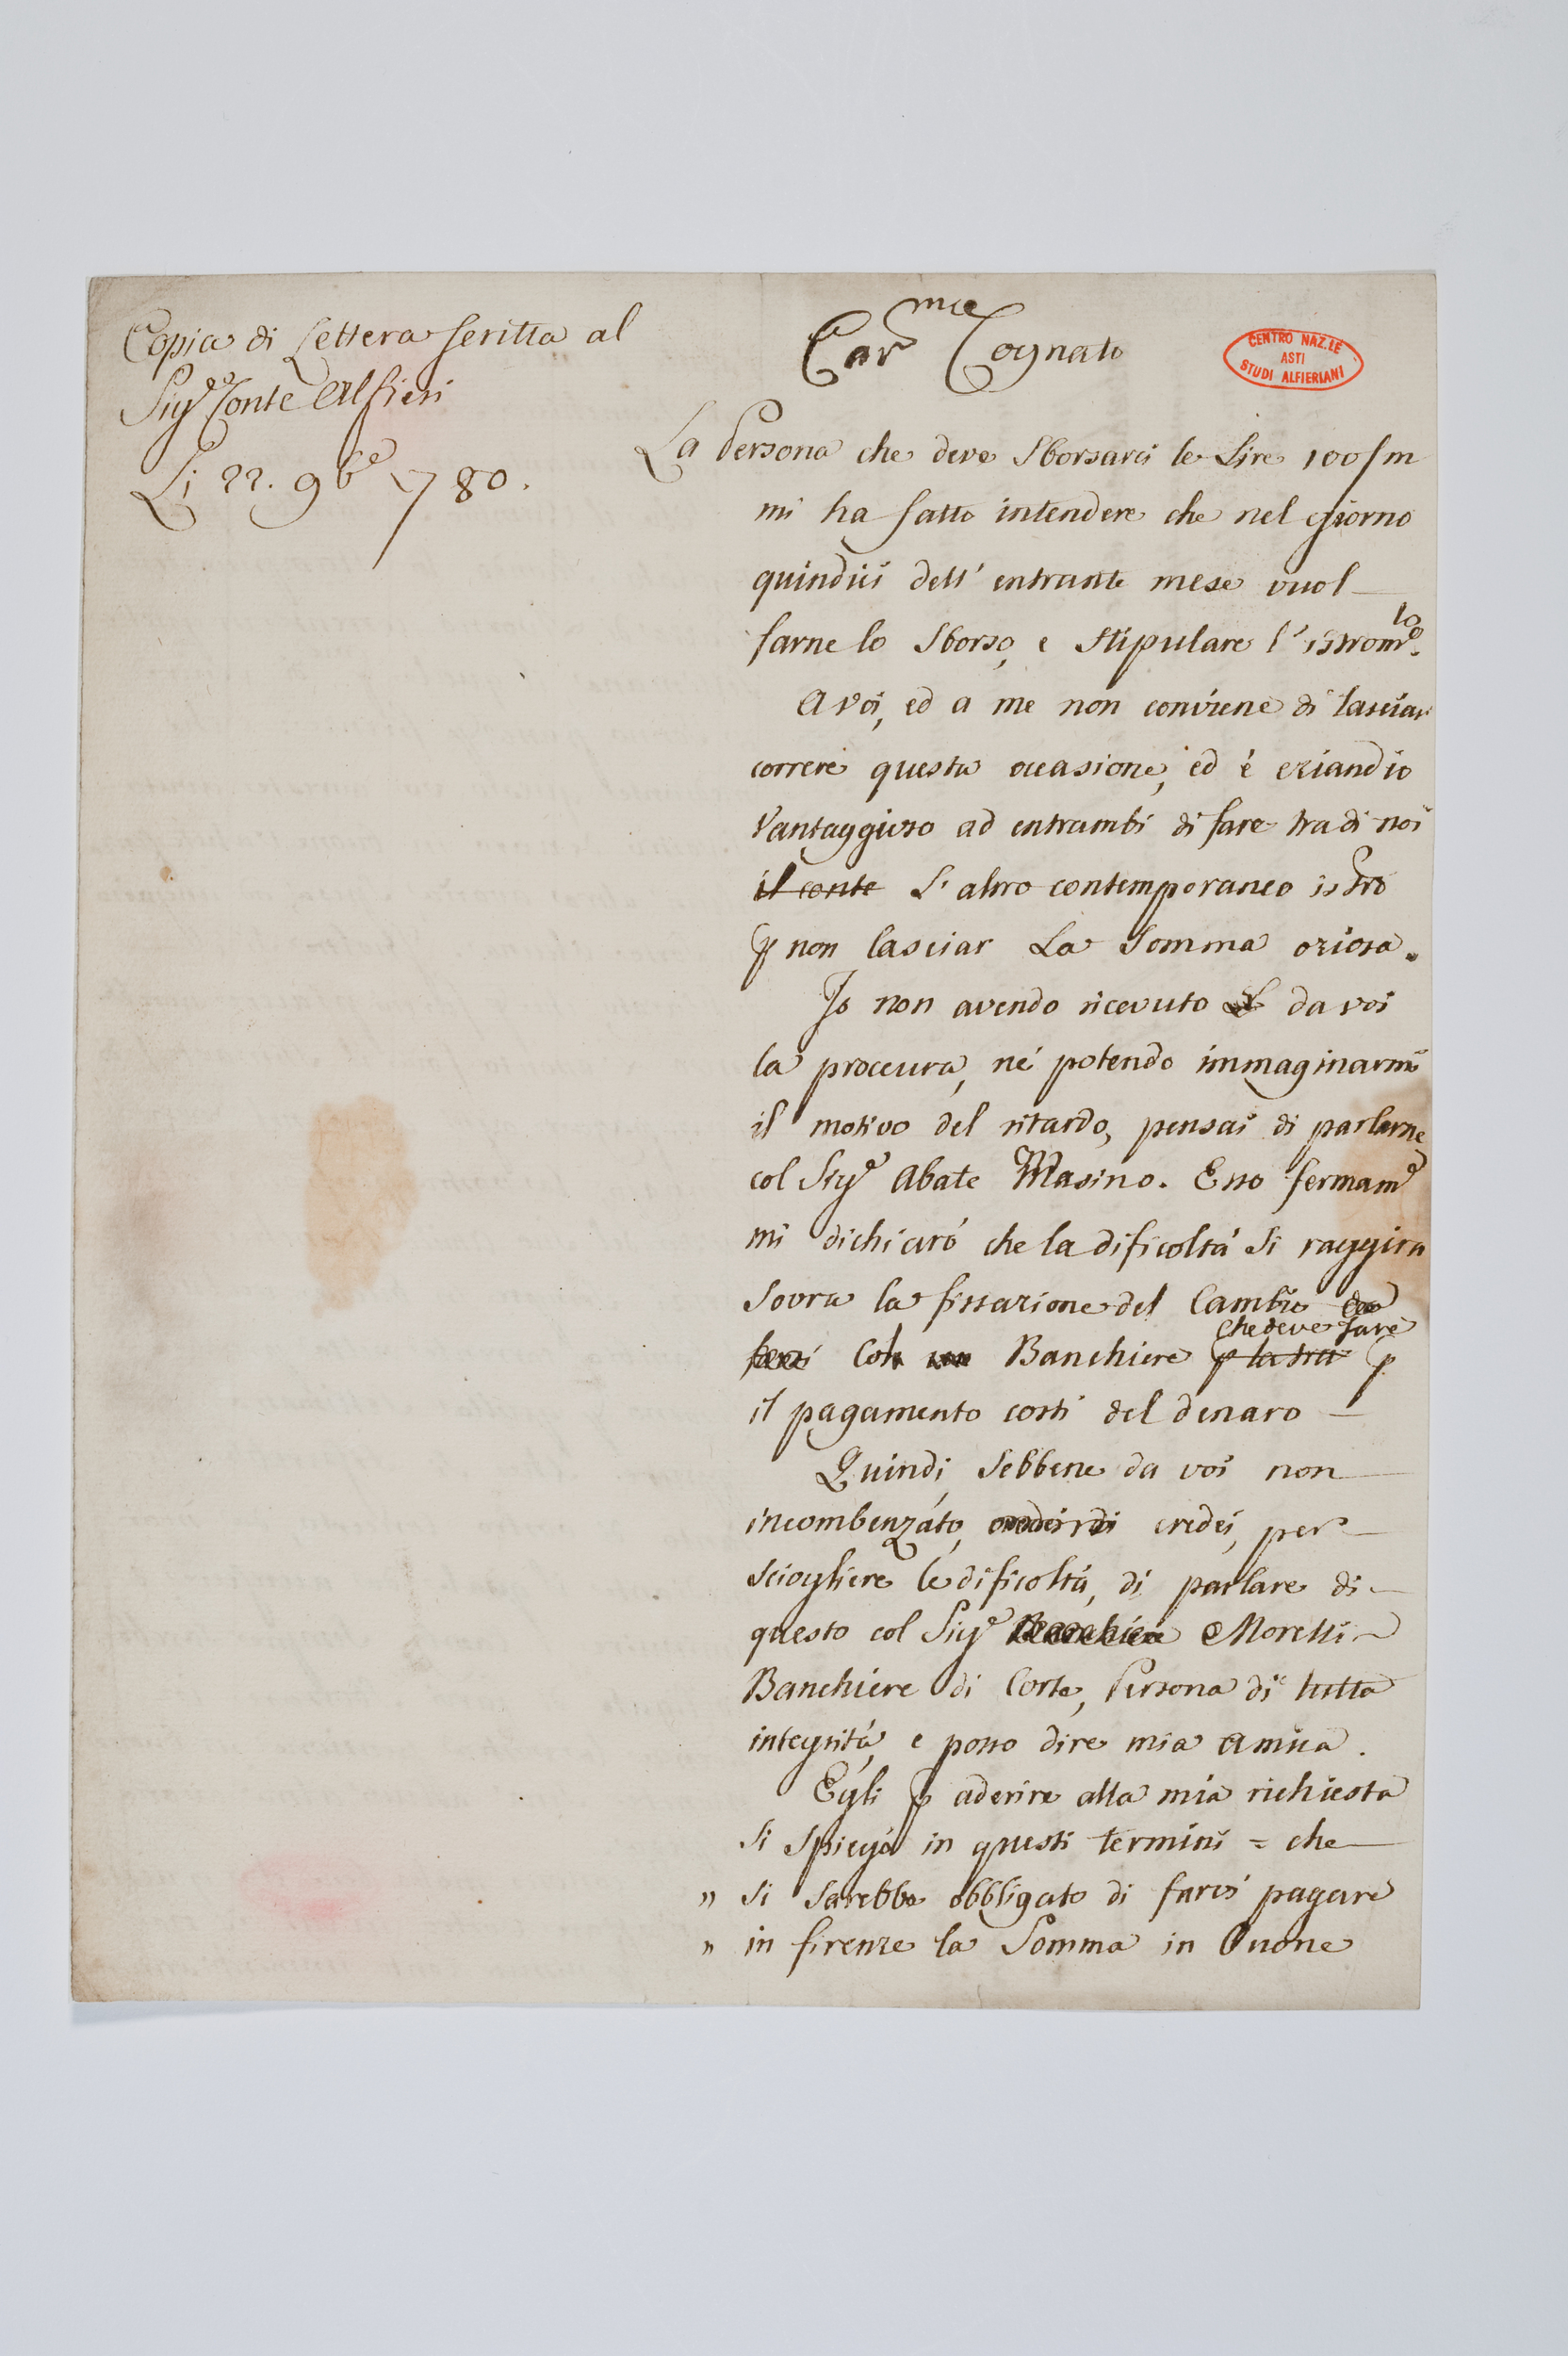 Copia di Lettera scritta al
Sig.e Conte Alfieri
Li 22. 9b.e 1780.
Car.mo Cognato
CENTRO NAZ.LE
ASTI
STUDI ALFIERIANI
La Persona che deve Sborsarci le Lire 100/m
mi ha fatto intendere che nel giorno
quindici dell' entrante mese vuol
farne lo Sborso, e Stipulare l' istrom.to
A voi, ed a me non conviene di lasciar
correre questa occasione, ed è eziandio
Vantaggioso ad entrambi di fare tra di noi
il conte L' altro contemporaneo istro
p non lasciar La Somma oziosa.
Io non avendo ricevuto da voi
la proccura, né potendo immaginarmi
il motivo del ritardo, pensai di parlarne
col Sig.e Abate Masino. Esso fermam.e
mi dichiaró che la dificoltá Si raggira
Sovra la fissazione del Cambio
che deve fare
Col Banchiere p la tra p
il pagamento costì del denaro
Quindi, Sebbene da voi non
incombenzáto, credei, per
Sciogliere le dificoltá, di parlare di
questo col Sig.e Banchiere Morelli
Banchiere di Corte, Persona di tutta
integritá, e posso dire mia Amica.
Egli p aderire alla mia richiesta
Si Spiegó in questi termini = che
" Si Sarebbe obbligato di farci pagare
" in firenze la Somma in Buone